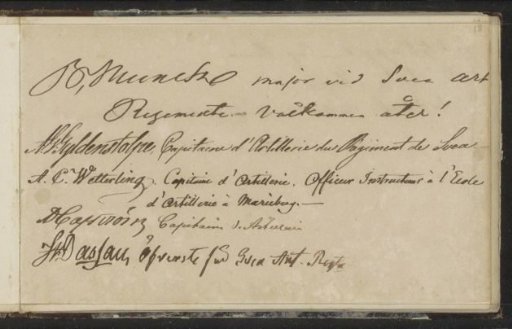 B. Munck major vid Svea Art
Regemente. Välkommen åter!
A. Gyldenstolpe Capitaine d'Artillerie du Régiment de Svea
A. C. Wetterling. Capitaine d'Artillerie. Officier Instructeur à l'Ecole
d'Artillerie à Marieberg.—
Capitaine d'Artillerie
Öfverste för Svea Art. Regte